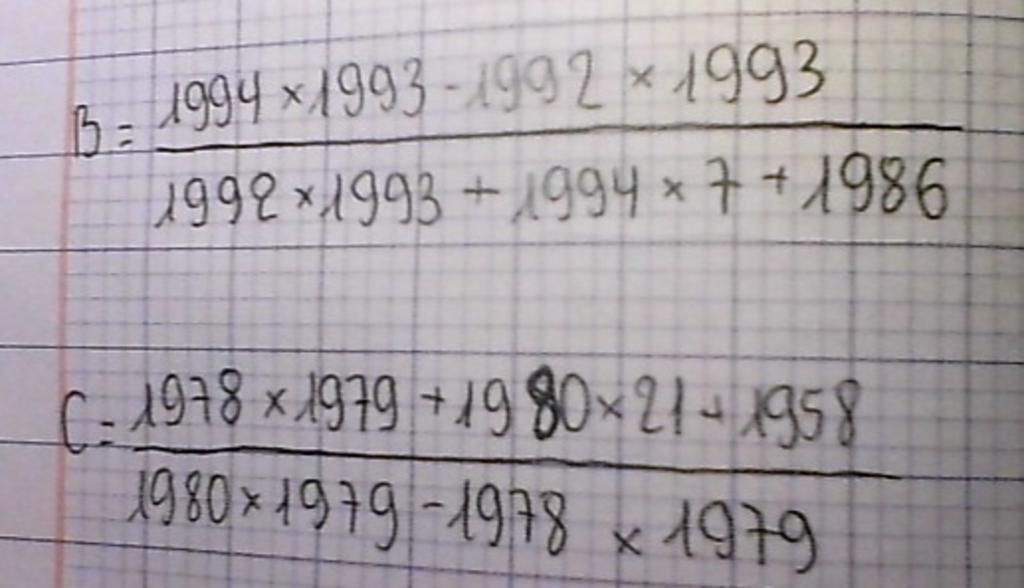 B = 1994 × 1993 - 1992 × 1993
1992 × 1993 + 1994 × 7 + 1986
C = 1978 × 1979 + 1980 × 21 + 1958
1980 × 1979 - 1978 × 1979